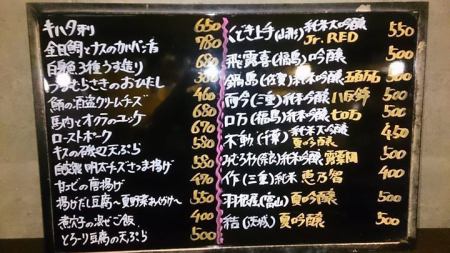 キハタ刺 650
金目鯛とナスのカルパッチョ 780
白身魚3種うま造り 680
おひたし 380
鮪の酒盗クリームチーズ 460
馬肉とオクラのユッケ 680
ローストポーク 670
キスの磯辺天ぷら 580
自家製明太チーズさつま揚げ 580
甘エビの唐揚げ 470
揚げだし豆腐〜夏野菜あんかけ〜 550
煮穴子の混ぜご飯 400
とろーり豆腐の天ぷら 500
くどき上手(山形)純米大吟醸 Jr. RED 550
飛露喜(福島)吟醸 500
鍋島(佐賀)純米吟醸 五百万石 500
而今(三重)純米吟醸 八反錦 500
ロ万(福島)純米吟醸 七ロ万 500
不動(千葉)純米大吟醸 夏吟醸 450
みむろ杉(奈良)純米吟醸 露葉風 500
作(三重)純米 恵乃智 400
羽根屋(富山)夏吟醸 500
結(茨城)夏吟醸 500